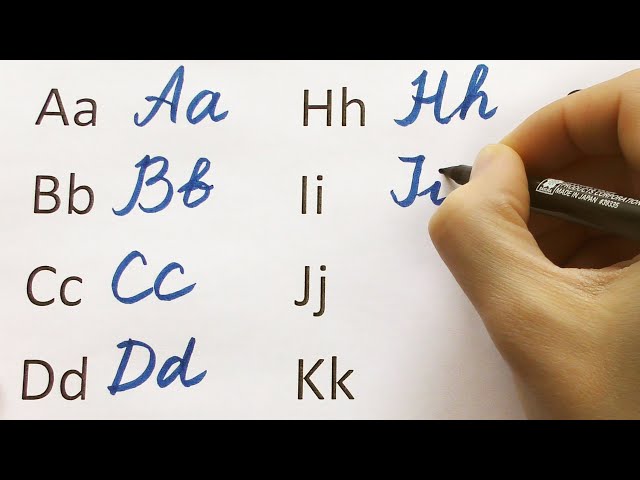 Aa Aa Hh Hh
Bb Bb Ii Ii
Cc Cc Jj
Dd Dd Kk
PRODUCTS CORPORATION
MADE IN JAPAN